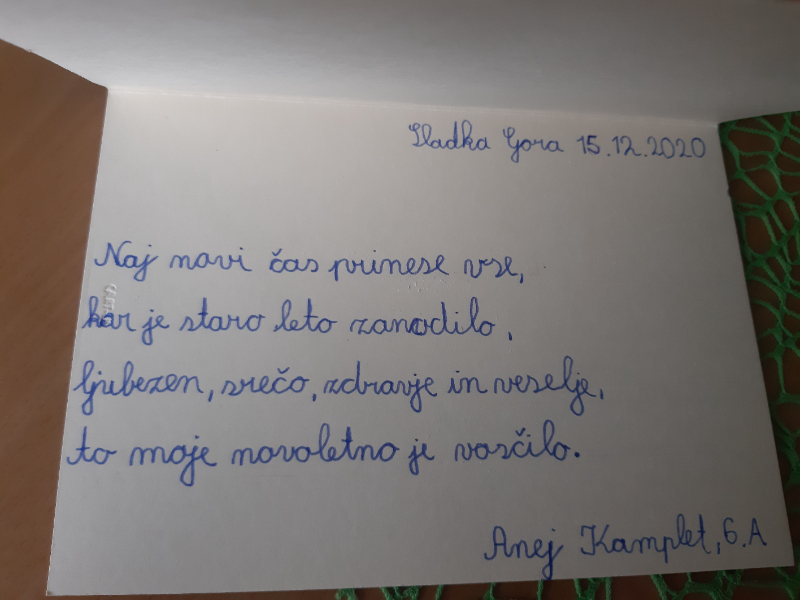 Sladka Gora 15.12.2020
Naj novi čas prinese vse,
kar je staro leto zamodilo,
ljubezen, srečo, zdravje in veselje,
to moje novoletno je voščilo.
Anej Kamplet, 6.A